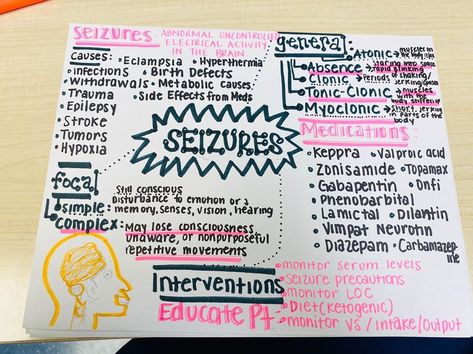 Seizures - ABNORMAL UNCONTROLLED
ELECTRICAL ACTIVITY
IN THE BRAIN
Causes:
• Eclampsia
• Hyperthermia
• Infections
• Birth Defects
• Withdrawals
• Metabolic causes
• Trauma
• Side Effects from Meds
• Epilepsy
• Stroke
• Tumors
• Hypoxia
SEIZURES
general
Atonic → muscles in
the body
Absence → Staring into space
rapid blinking
Clonic → Periods of shaking/
jerking
Tonic-Clonic → muscles
with the
body
Myoclonic → short jerking
in parts of the
body
Medications:
• Keppra
• Valproic acid
• Zonisamide
• Topamax
• Gabapentin
• Onfi
• Phenobarbital
• Lamictal
• Dilantin
• Vimpat
Neurotin
• Diazepam
• Carbamazepine
focal
Still conscious
simple: disturbance to emotion or a
memory, senses, vision, hearing
complex: May lose consciousness,
unaware, or nonpurposeful
repetitive movements
Interventions
Educate Pt
• monitor serum levels
• seizure precautions
• monitor LOC
• Diet (ketogenic)
• monitor VS / intake/output